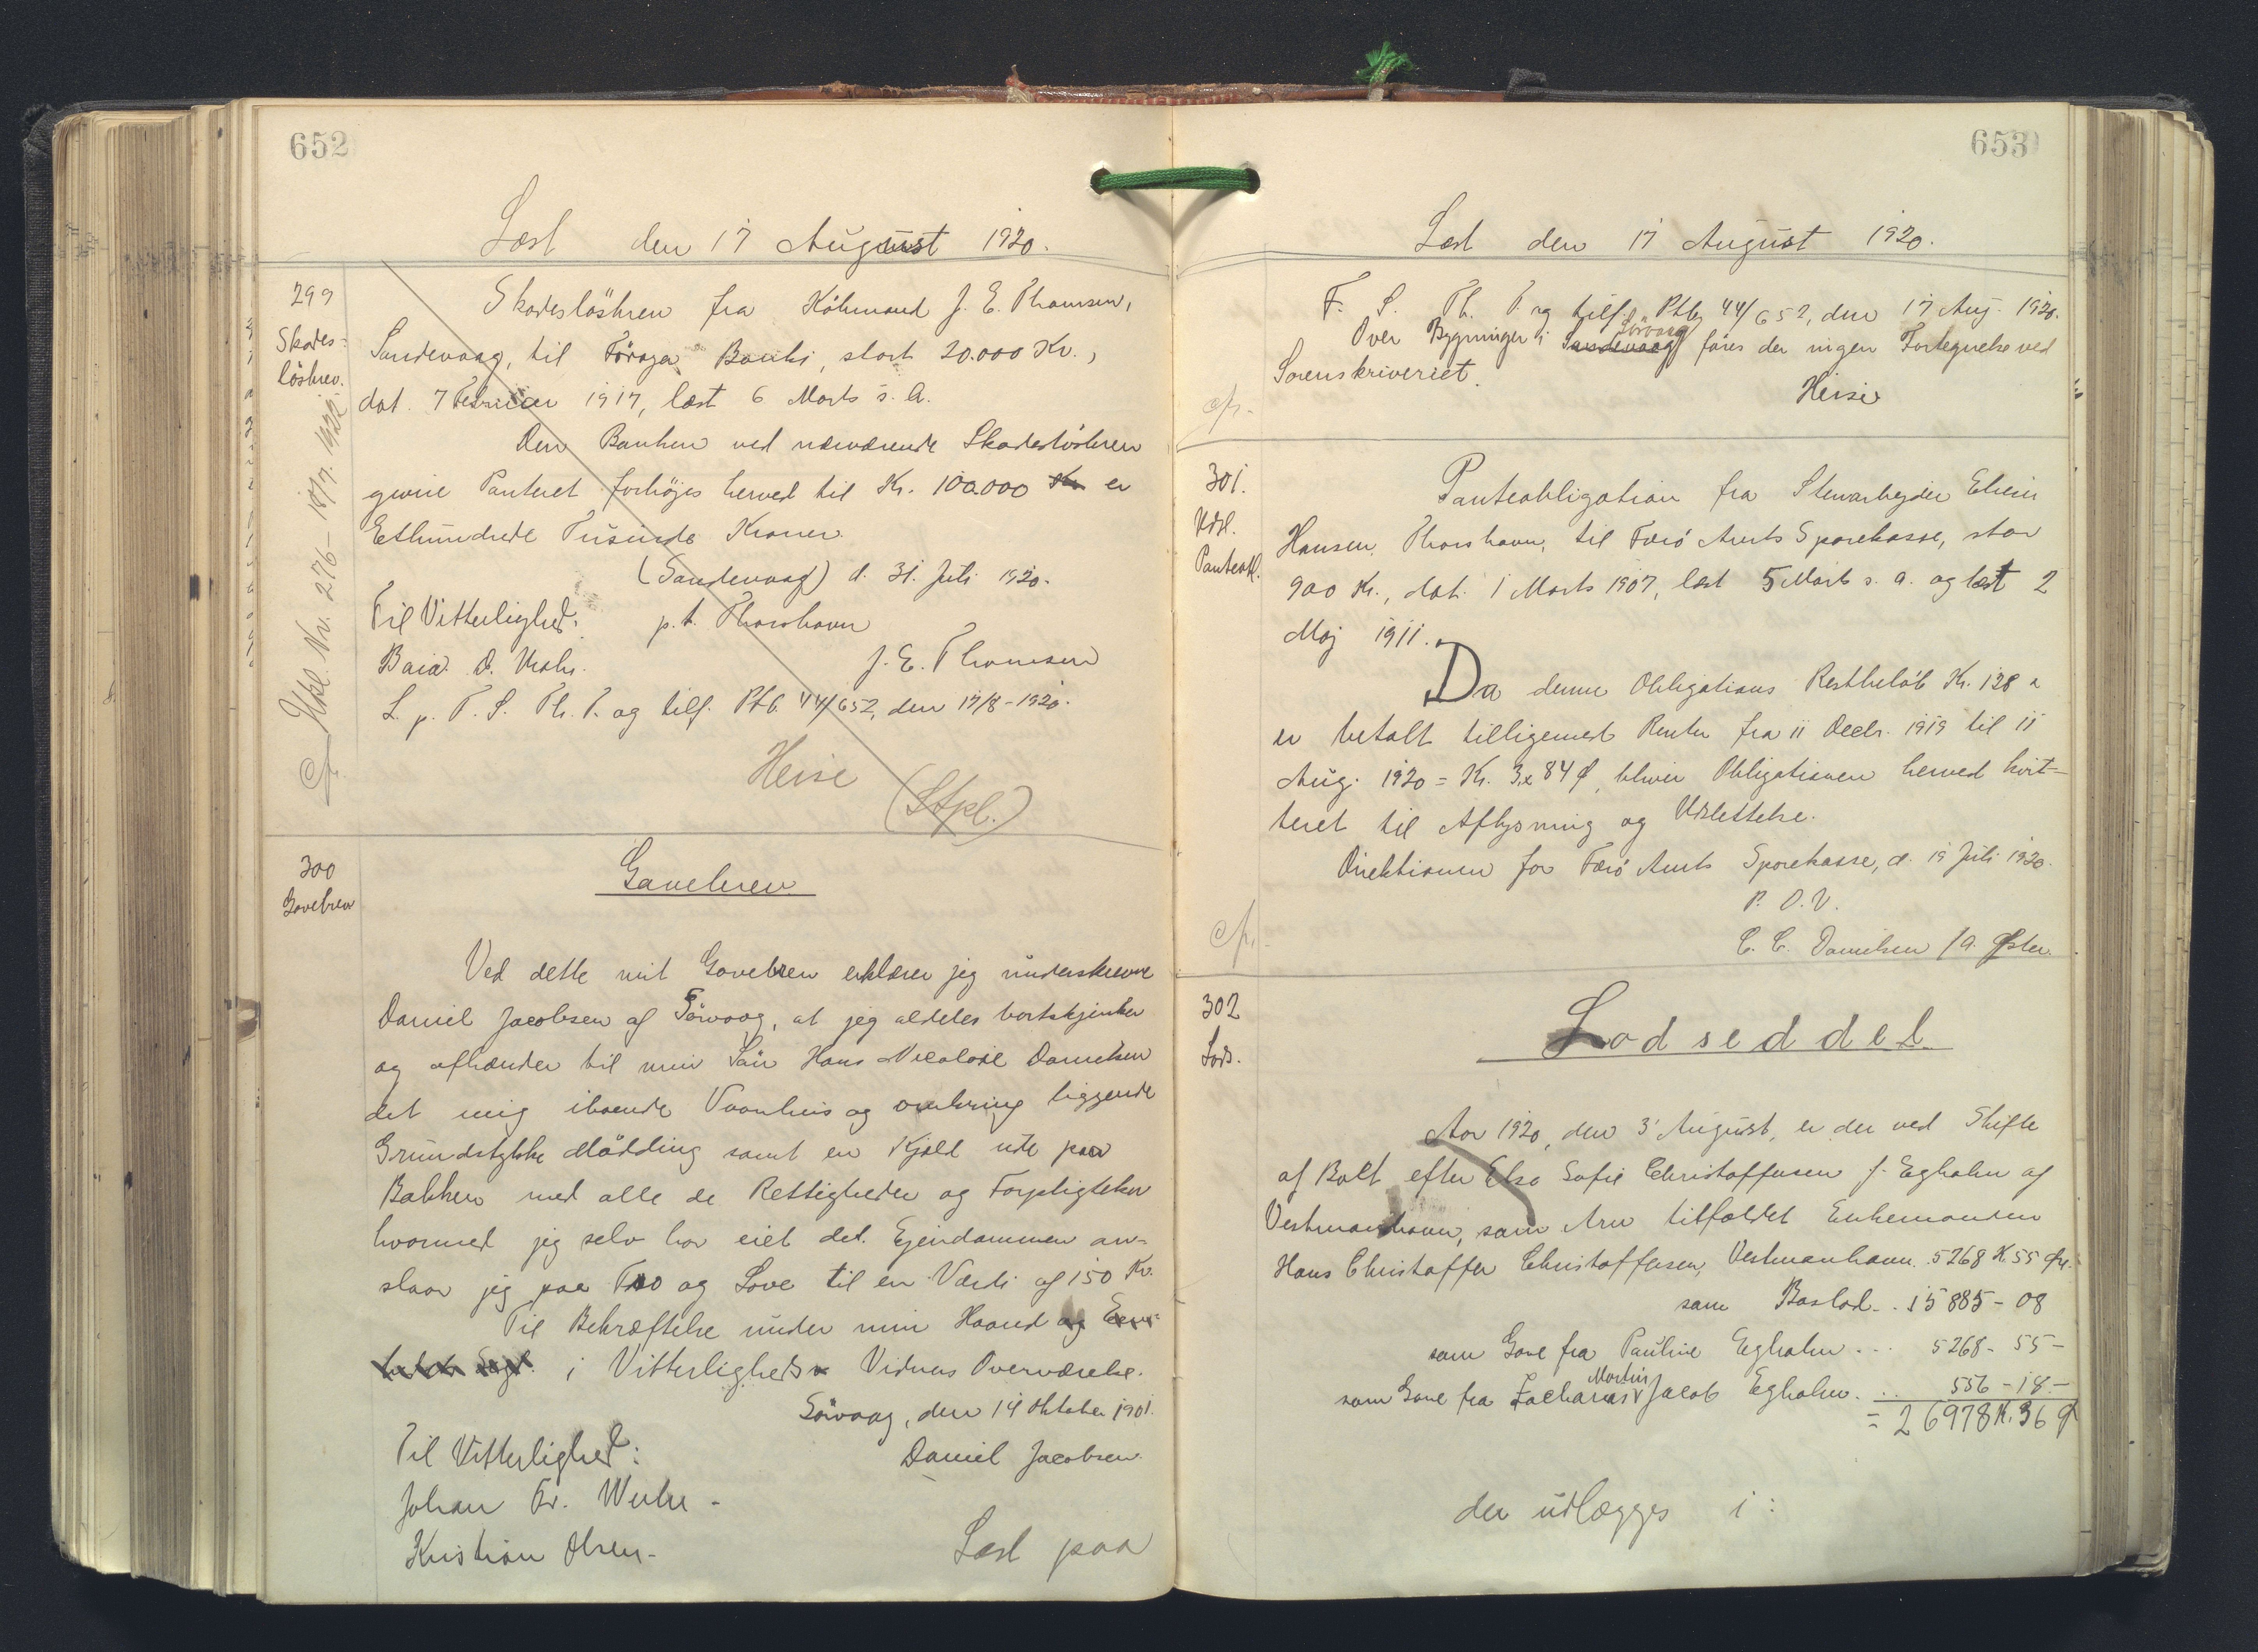 652
Læst den 17 August 1920.
299
Skades-
løsbrev.
Skadesløsbrev fra Købmand J. E. Thomsen,
Sandevaag, til Föroya Banki, stort 20.000 Kr.,
dat. 7 Februar 1917, læst 6 Marts s. A.
Den Banken ved nærværende Skadesløsbrev
givne Panteret forhøjes herved til Kr. 100.000 er
Ethundrede Tusinde Kroner.
(Sandevaag) d. 31. Juli 1920.
Til Vitterlighed: p. t. Thorshavn
J. E. Thomsen
L. p. F. S. Th. T. og tilf. Ptb. 44/652, den 17/8-1920.
Heise
(Stpl.)
Nr. 276 - 18/7. 1922.
300
Gavebrev
Gavebrev
Ved dette mit Gavebrev erklærer jeg underskrevne
Daniel Jacobsen af Sörvaag, at jeg aldeles bortskjenker
og afhænder til min Sön Hans Nicolaje Danielsen
det mig iboende Vaanhus og omkring liggende
Grundstykke Mödding samt en Kjald ude paa
Bakken med alle de Rettigheder og Forpligtelser
hvormed jeg selv har eiet det. Ejendommen an-
slaar jeg paa Tro og Love til en Værdi af 150 Kr.
Til Bekræftelse under min Haand og
i Vitterligheds Vidners Overværelse.
Sörvaag, den 14 Oktober 1901.
Til Vitterlighed: Daniel Jacobsen.
Johan Fr.
Kristian Olsen.
Læst paa
653
Læst den 17 August 1920.
F. S. Th. T. og tilf. Ptb. 44/652, den 17 Aug. 1920.
Sörvaag
Over Bygninger i Sandevaag føres der ingen Fortegnelse ved
Sorenskriveriet.
Heise
301.
Udsl.
Panteobl.
Panteobligation fra Stenarbejder
Hansen, Thorshavn, til Færø Amts Sparekasse, stor
900 Kr., dat. 1 Marts 1907, læst 5 Marts s. A. og læst 2
Maj 1911.
Da denne Obligations Restbeløb Kr. 128
er betalt tilligemed Renter fra 11 Decbr. 1919 til 11
Aug. 1920 = Kr. 3, 84 Ø, bliver Obligationen herved kvit-
teret til Aflysning og Udslettelse.
Direktionen for Færø Amts Sparekasse, d. 19 Juli 1920.
P. D. V.
C. C. Danielsen / A.
302
Lods.
Lodseddel
Aar 1920, den 3' August, er der ved Skifte
af Boet efter Elsa Sofie Christoffersen f. Egholm af
Vestmanhavn, som Arv tilfaldet Enkemanden
Hans Christoffer Christoffersen, Vestmanhavn. 5268 K. 55 Øre.
som Boslod .. 15885 - 08
som Gave fra Pauline Egholm ... 5268 - 55 -
Martin
som Gave fra Zacharias Jacob Egholm. .. 556 - 18 -
= 26978 K. 36 Ø
der udlægges i: